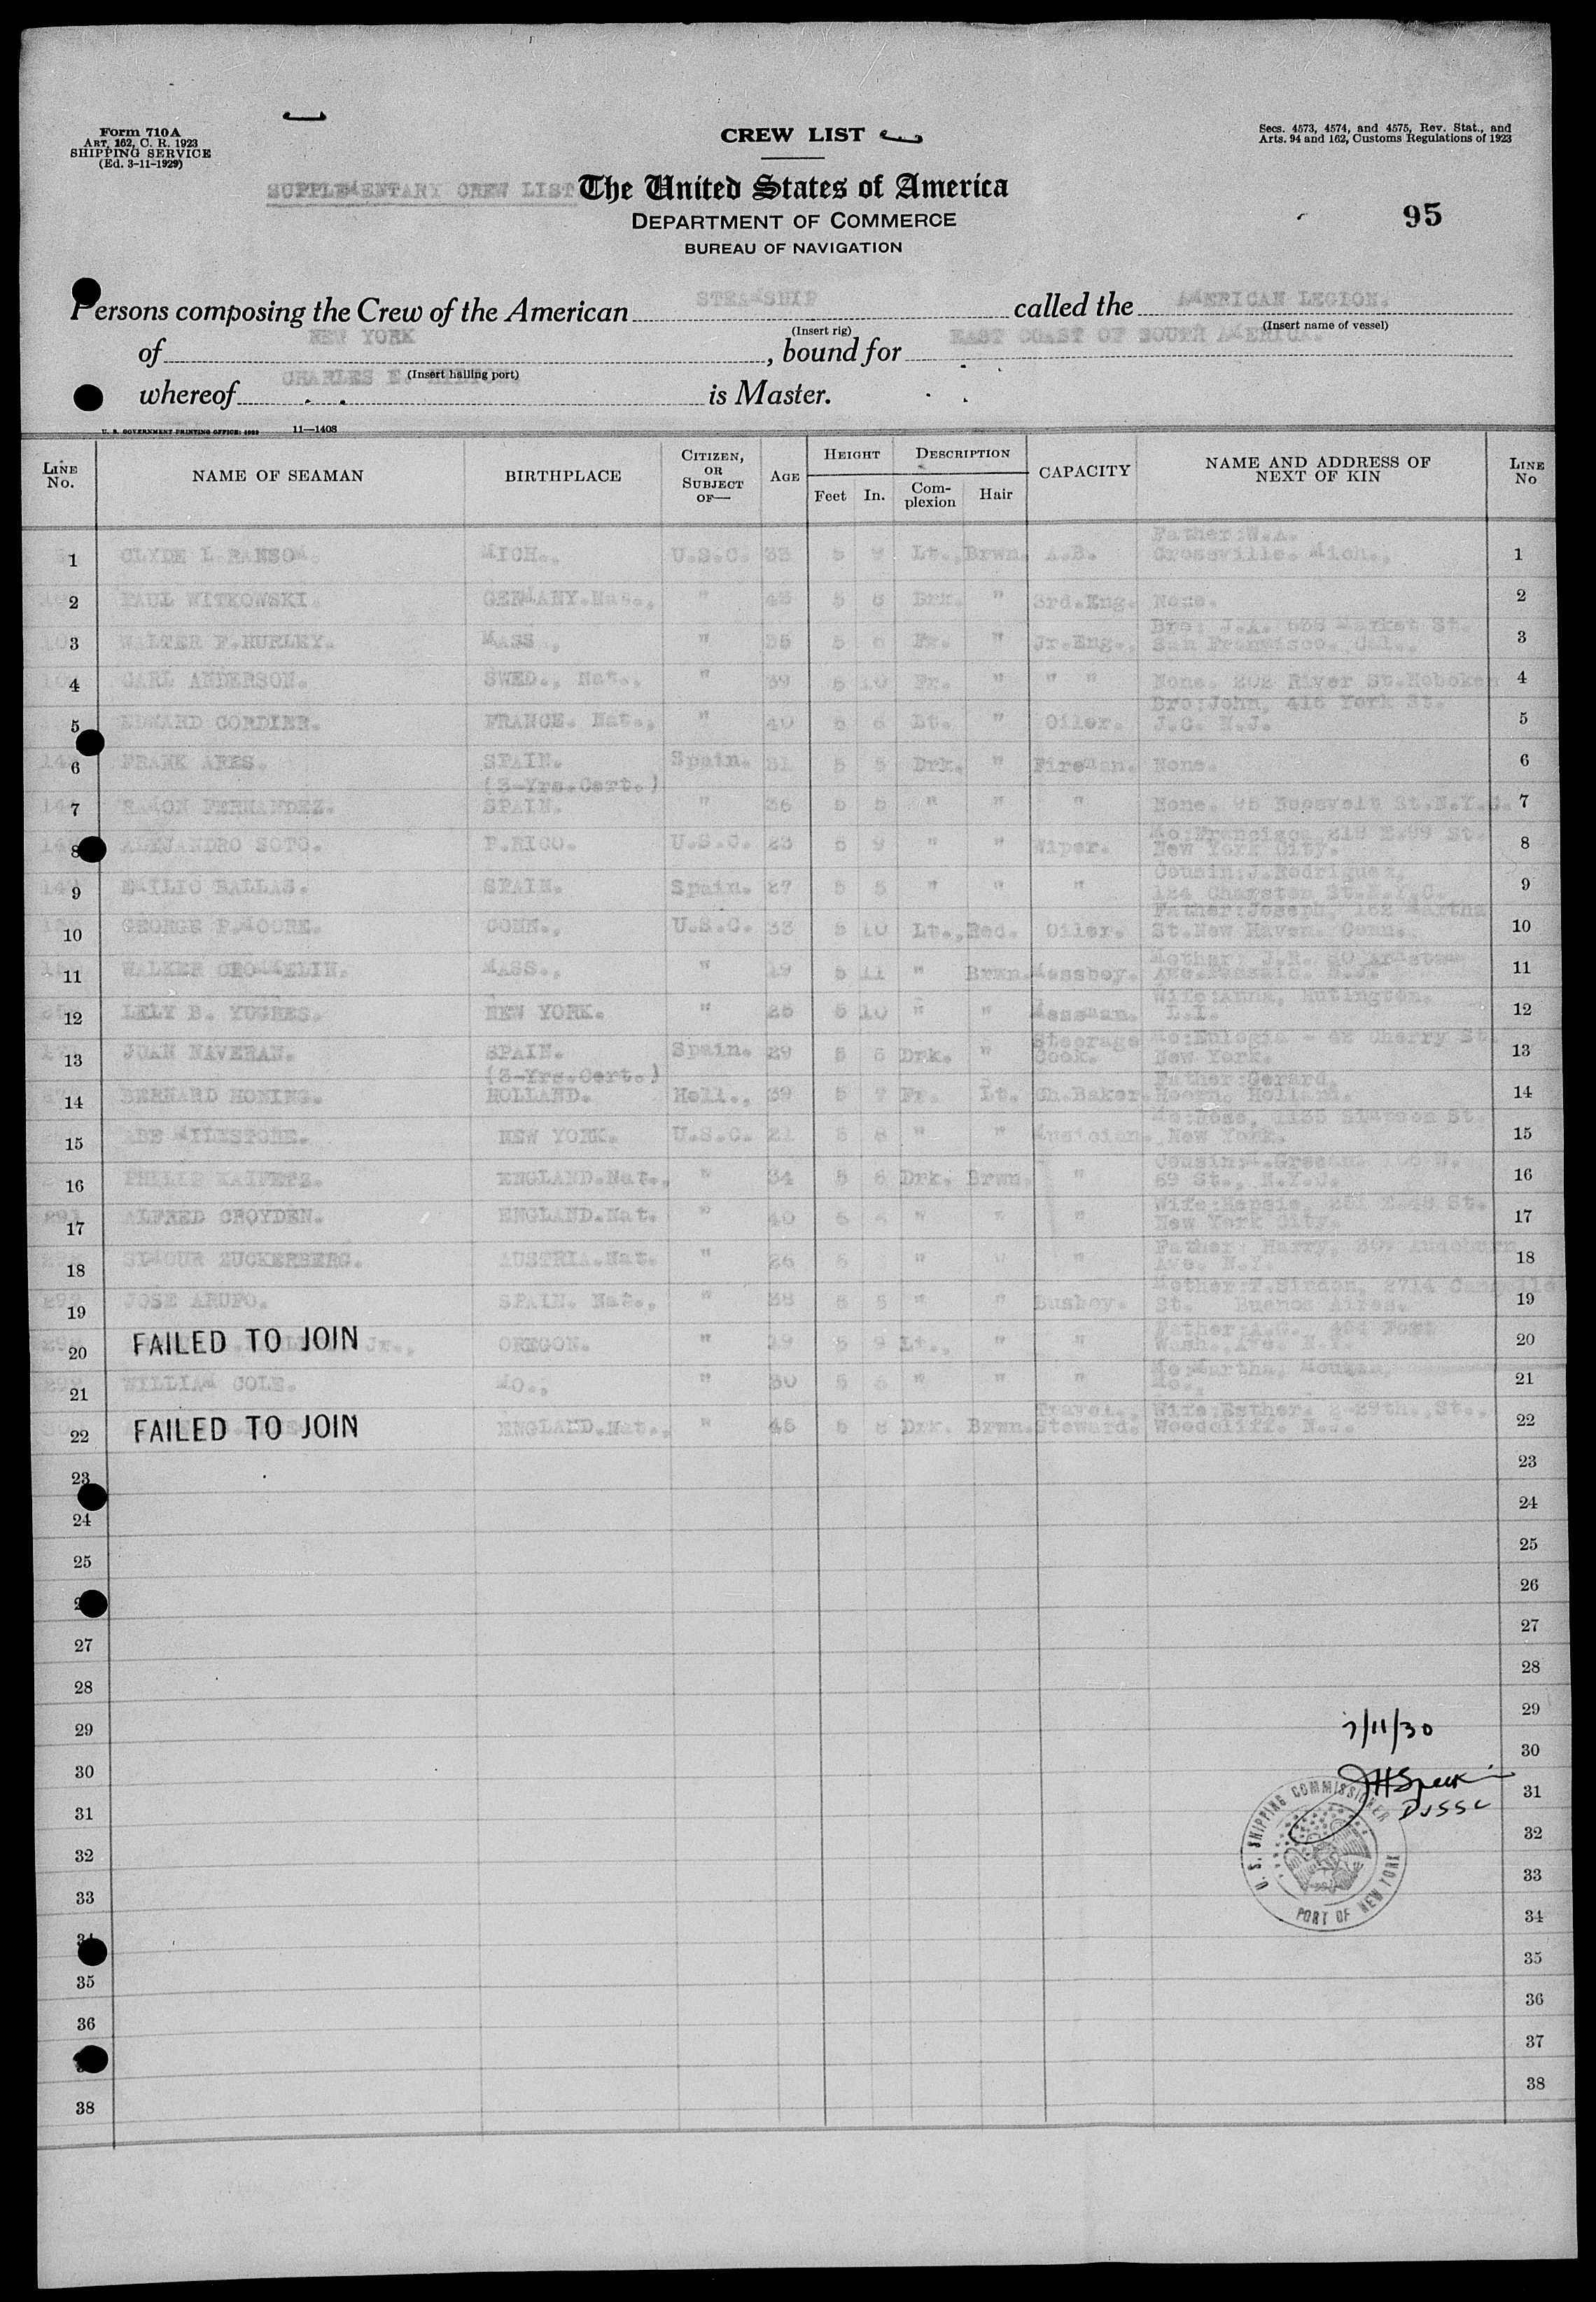 Form 710A
ART. 162, C. R. 1923
SHIPPING SERVICE
(Ed. 3-11-1929)
CREW LIST
Secs. 4573, 4574, and 4575, Rev. Stat., and
Arts. 94 and 162, Customs Regulations of 1923
SUPPLEMENTARY CREW LIST
The United States of America
DEPARTMENT OF COMMERCE
BUREAU OF NAVIGATION
95
Persons composing the Crew of the American STEAMSHIP called the AMERICAN LEGION.
(Insert rig) (Insert name of vessel)
of NEW YORK, bound for EAST COAST OF SOUTH AMERICA.
(Insert hailing port)
whereof CHARLES E. is Master.
U. S. GOVERNMENT PRINTING OFFICE: 11—1408
LINE No. NAME OF SEAMAN BIRTHPLACE CITIZEN, OR SUBJECT OF— AGE HEIGHT Feet In. DESCRIPTION Complexion Hair CAPACITY NAME AND ADDRESS OF NEXT OF KIN LINE No
1 CLYDE L RANSOM. MICH., U.S.C. 33 5 9 Lt., Brwn. A.B. Father:W.A. Mich., 1
2 PAUL WITKOWSKI. GERMANY.Nat., " 5 Drk. " 3rd.Eng. None. 2
3 WALTER F.HURLEY. MASS., " 5 6 Fr. " Jr.Eng., Bro: J.A. Market St. San Francisco. Cal., 3
4 CARL ANDERSON. SWED., Nat., " 39 5 10 Fr. " " " None. 202 River St.Hoboken 4
5 EDWARD CORDIER. FRANCE. Nat., " 40 5 6 Lt. " Oiler. Bro:John, 415 York St. J.C. N.J. 5
6 FRANK ARES. SPAIN. Spain. 31 5 5 Drk. " Fireman. None. 6
(3-Yrs.Cert.)
7 RAMON FERNANDEZ. SPAIN. " 36 5 5 " " " None. 95 Roosevelt St.N.Y.C. 7
8 ALEJANDRO SOTO. P.RICO. U.S.C. 23 5 9 " " Wiper. Mo:Francisca 219 E.99 St. New York City. 8
9 EMILIO BALLAS. SPAIN. Spain. 27 5 5 " " " Cousin:J.Rodriguez, 124 St.N.Y.C. 9
10 GEORGE P.MOORE. CONN., U.S.C. 33 5 10 Lt., Red. Oiler. Father:Joseph, 152 Martha St.New Haven. Conn. 10
11 WALKER CROMMELIN. MASS., " 19 5 11 " Brwn. Messboy. Mother: J.R. Ave.Passaic. N.J. 11
12 LELY B. YUGHES. NEW YORK. " 25 5 10 " " Messman. Wife:Anna, Hutington. L.I. 12
13 JUAN NAVERAN. SPAIN. Spain. 29 5 Drk. " Steerage Cook. Mo:Eulogia - 42 Cherry St. New York. 13
(3-Yrs.Cert.)
14 BERNARD HONING. HOLLAND. Holl., 39 5 7 Fr. Lt. Ch.Baker. Father:Gerard, Hoorn. Holland. 14
15 ABE MILESTONE. NEW YORK. U.S.C. 21 5 8 " " Musician. Mo:Rose, 1135 Simpson St. New York. 15
16 ENGLAND.Nat., " 34 5 6 Drk. Brwn. " Cousin: 69 St., N.Y.C. 16
17 ALFRED CROYDEN. ENGLAND.Nat. " 40 5 " " " St. New York City. 17
18 ZUCKERBERG. AUSTRIA.Nat. " 26 5 " " " Father: Harry Ave. N.Y. 18
19 JOSE ARUFO. SPAIN. Nat., " 38 5 5 " " Busboy. St. Buenos Aires. 19
20 FAILED TO JOIN Jr., OREGON. " 19 5 9 Lt., " " Father:A.G. Fort Wash.,Ave. N.Y. 20
21 WILLIAM COLE. MO., " 30 5 6 " " " Mo:Martha, Mo., 21
22 FAILED TO JOIN ENGLAND.Nat., " 45 5 8 Drk. Brwn. Travel., Steward. Wife:Esther. 2-29th.,St., Woodcliff. N.J. 22
23 23
24 24
25 25
26
27 27
28 28
29 29
7/11/30
30 30
31 31
32 32
33 33
34
35 35
36 36
37
38 38
U. S. SHIPPING COMMISSIONER
PORT OF NEW YORK